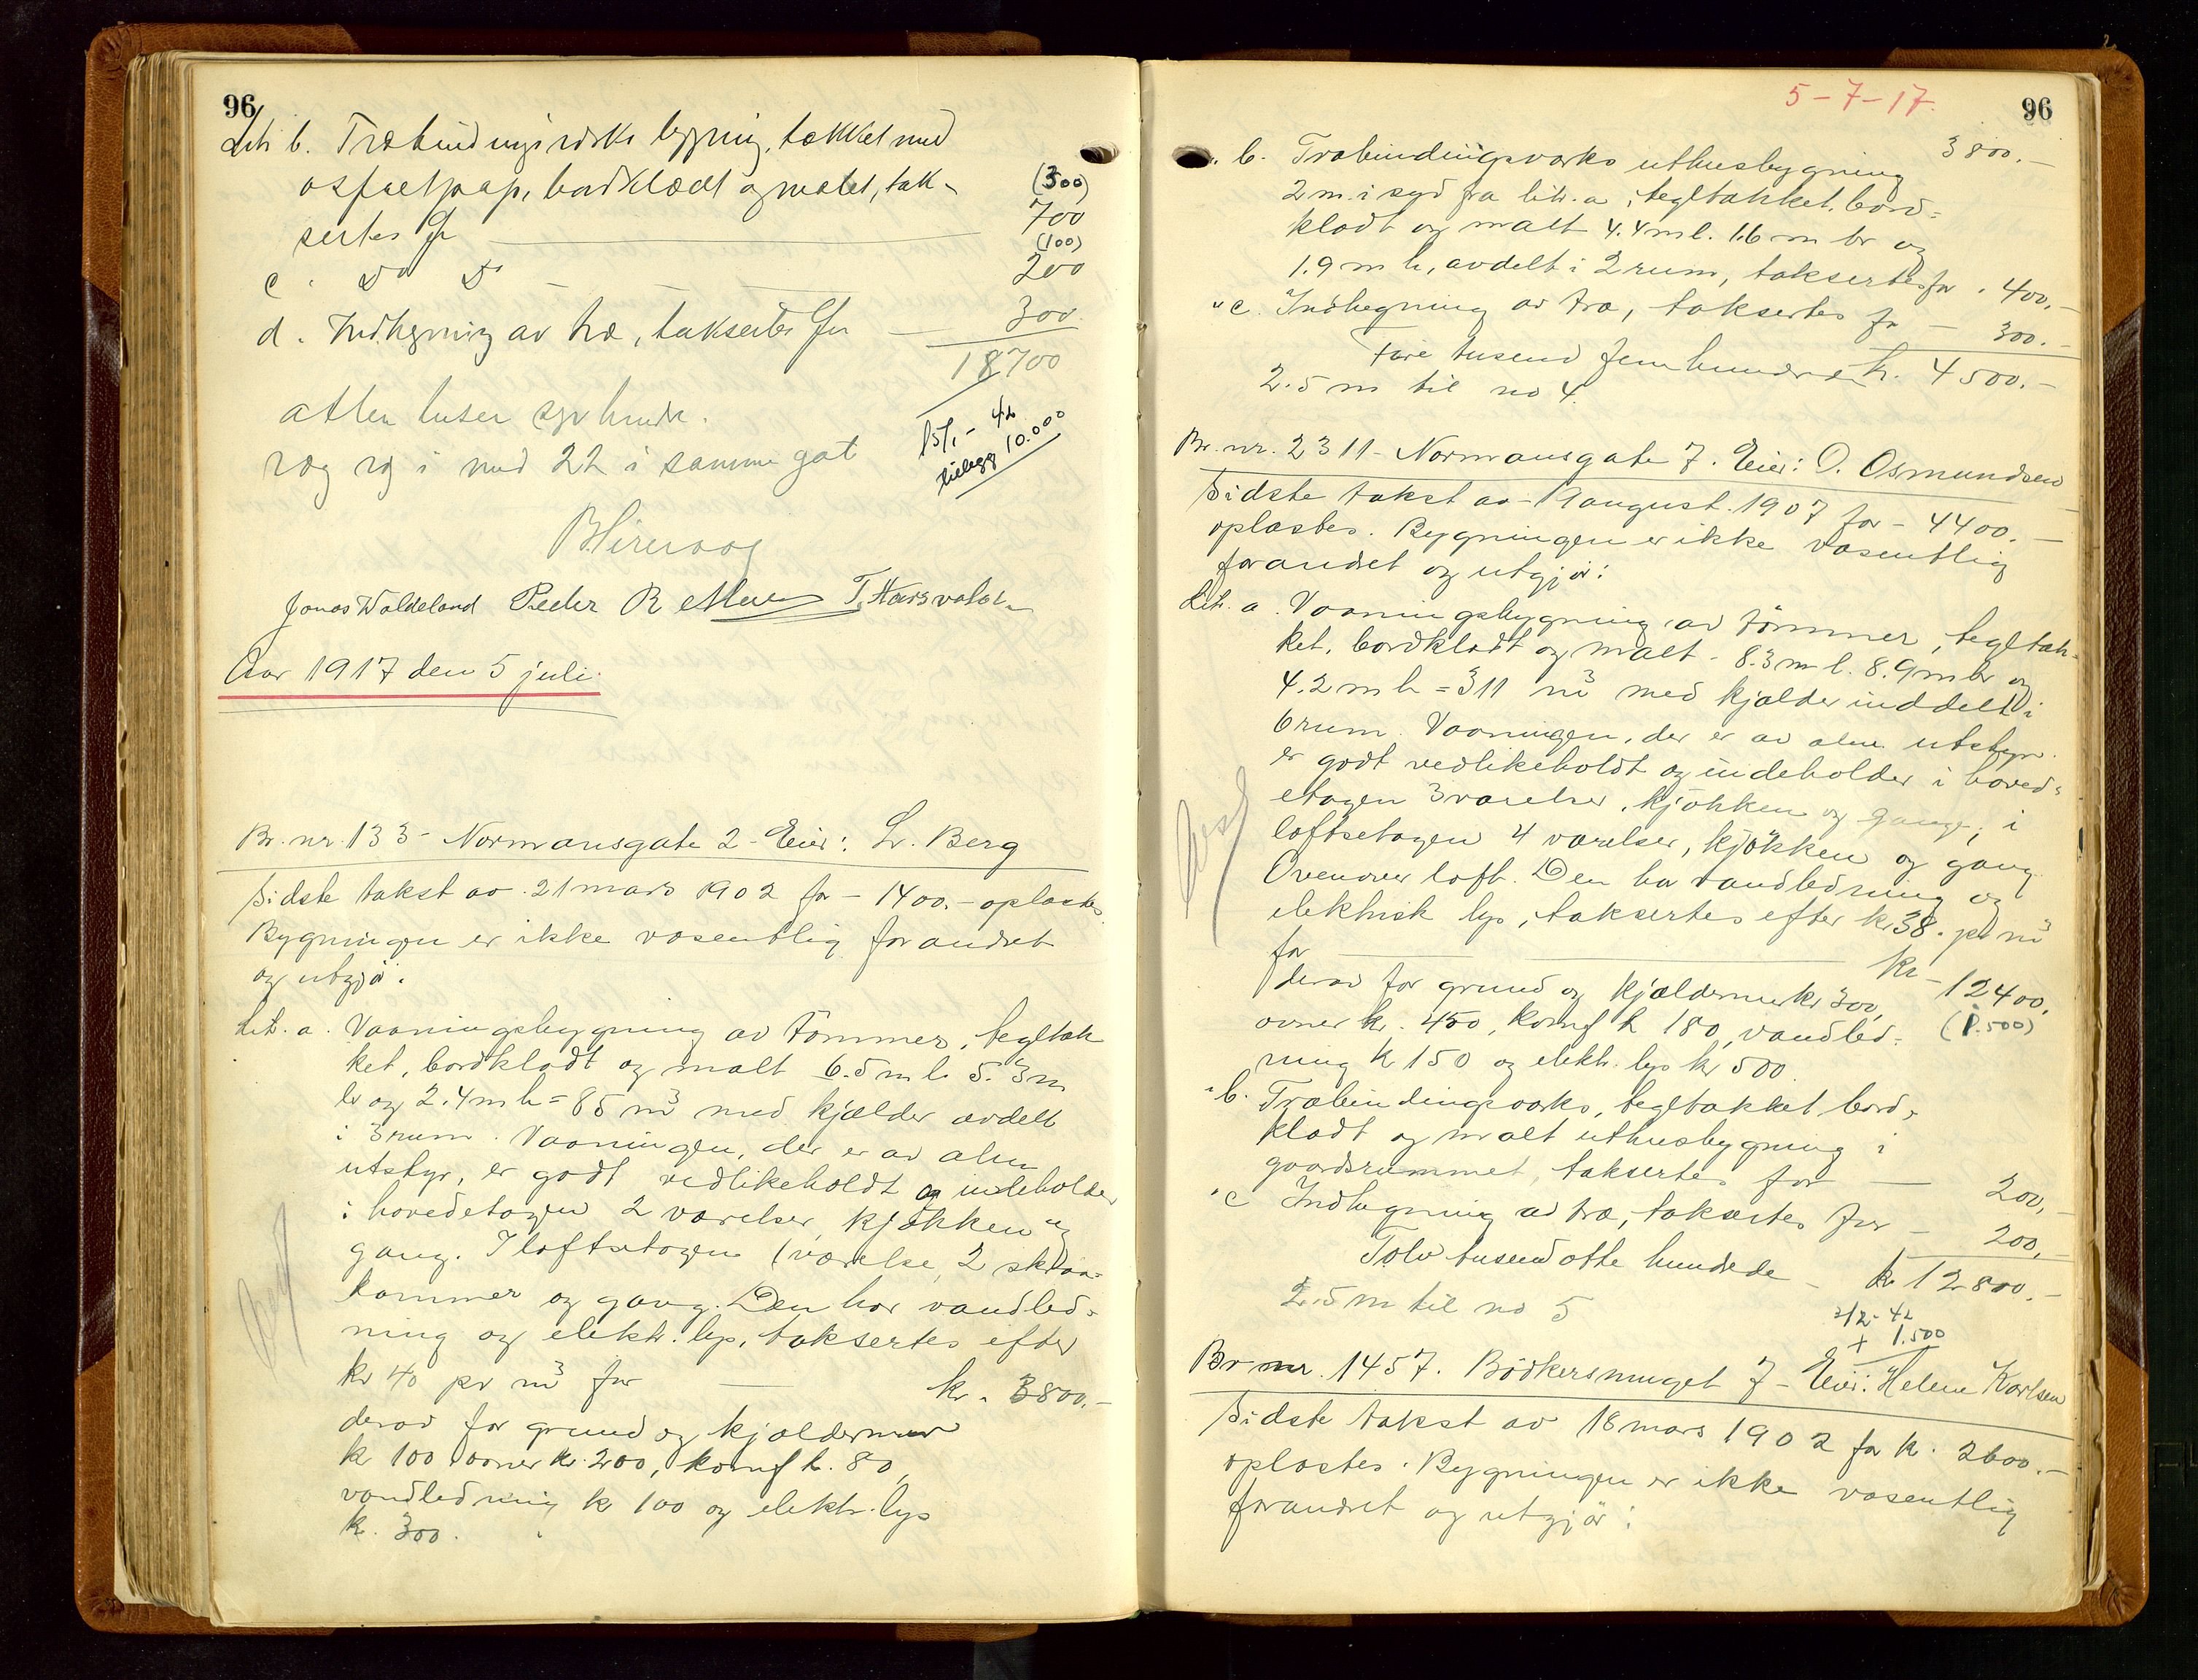 96
Litr b. Træbindingsverks bygning, tækket med
asfaltpap, bordklædt og malet, tak-
(300)
sertes for 700
(100)
c. Do Do 200
d. Indhegning av træ, taksertes for 300
18700
atten tusen syv hundr.
15/1 - 42
tillegg 10.000
væg i med 22 i samme gate
Jonas Waldeland Peder Retten
Aar 1917 den 5 juli.
Br. nr. 133 - Normansgate 2 - Eier: L. Berg
Sidste takst av 21 mars 1902 for - 1400.- oplæstes.
Bygningen er ikke væsentlig forandret
og utgjør:
Litr. a. Vaaningsbygning av tømmer, tegltæk
ket, bordklædt og malt 6.5 m l. 5.3 m
br og 2.4 m h = 85 m3 med kjælder avdelt
i 3 rum. Vaaningen, der er av alm
utstyr, er godt vedlikeholdt og indeholder
i hovedetagen 2 værelser, kjøkken og
gang. I loftsetagen 1 værelse, 2 skraa-
kammer og gang. Den har vandled-
ning og elektr. lys, taksertes efter
kr 40 pr m3 for kr. 3800.-
derav for grund og kjældermur
kr 100 ovner kr. 200, komf kr. 80,
vandledning kr 100 og elektr. lys
kr. 300.
5-7-17.
96
3800.-
" b. Træbindingsverks uthusbygning
2 m. i syd fra litr. a, tegltækket, bord-
klædt og malt 4.4 m l. 1.6 m br og
1.9 m h, avdelt i 2 rum, taksertes for " 400.-
" c. Indhegning av træ, taksertes for - 300.-
Fire tusend fem hundrede kr. 4500.-
2.5 m til no 4.
Br. nr. 2311 - Normansgate 7. Eier: O. Osmundsen
Sidste takst av - 19 august 1907 for - 4400.-
oplæstes. Bygningen er ikke væsentlig
forandret og utgjør:
Litr. a. Vaaningsbygning av tømmer, tegltæk-
ket, bordklædt og malt - 8.3 m l. 8.9 m br og
4.2 m h = 311 m3 med kjælder inddelt i
6 rum. Vaaningen, der er av alm utstyr
er godt vedlikeholdt og indeholder i hoved-
etagen 3 værelser, kjøkken og gange, i
loftsetagen 4 værelser, kjøkken og gang
Ovenover loft. Den har vandledning og
elektrisk lys, taksertes efter kr 38. pr m3
for kr - 12400.
derav for grund og kjældermur kr 300,
(1.500)
ovner kr. 450, komf kr 180, vandled-
ning kr 150 og elektr. lys kr 500.
" b. Træbindingsverks, tegltækket bord-
klædt og malt uthusbygning i
gaardsrummet, taksertes for 200.-
" c Indhegning av træ, taksertes for - 200.-
Tolv tusend otte hundrede - kr 12800.-
2.5 m til no 5
2/2 - 42
+ 1.500
Br nr. 1457. Bødkersmuget 7 - Eier: Helene Karlsen
Sidste takst av 18 mars 1902 for kr. 2600.-
oplæstes. Bygningen er ikke væsentlig
forandret og utgjør: